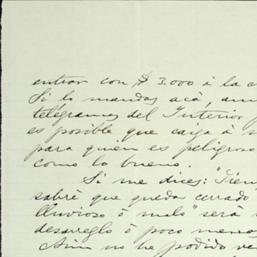 entrar con $ 3.000 á la c
Si lo mandas acá, am
telégramas del Interior
es posible que caiga á s
para quien es peligroso
como lo bueno.
Si me dices: "Tiem
sabré que queda cerrado
lluvioso ó malo" será
desarreglo ó poco meno
Aun no he podido ve